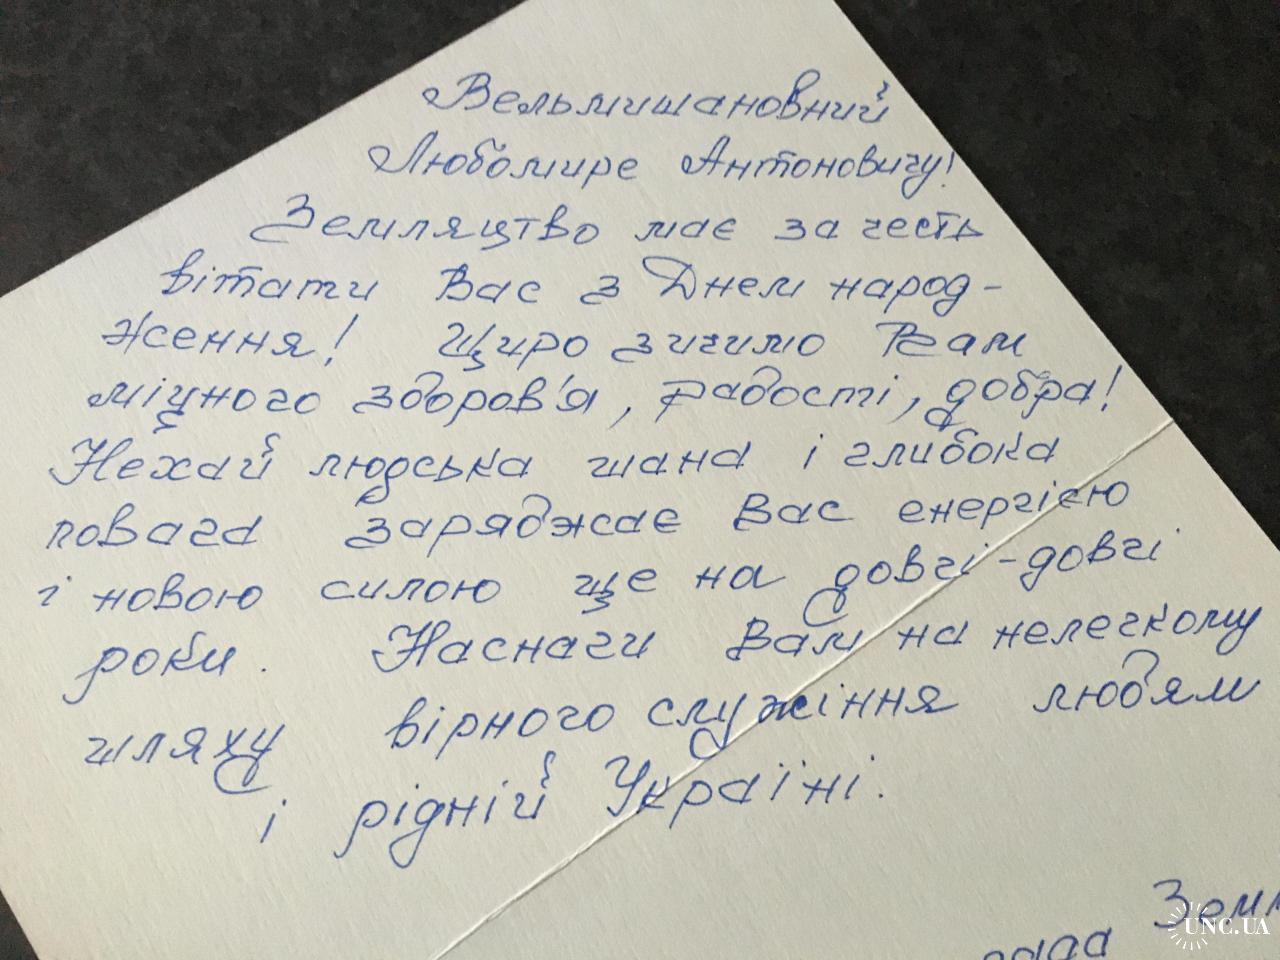 Вельмишановний
Любомире Антоновичу!
Земляцтво має за честь
вітати Вас з Днем народ-
ження! Щиро зичимо Вам
міцного здоров'я, радості, добра!
Нехай людська шана і глибока
повага заряджає Вас енергією
і новою силою ще на довгі-довгі
роки. Наснаги Вам на нелегкому
шляху вірного служіння людям
і рідній Україні.
Земл
рада
UNC.UA